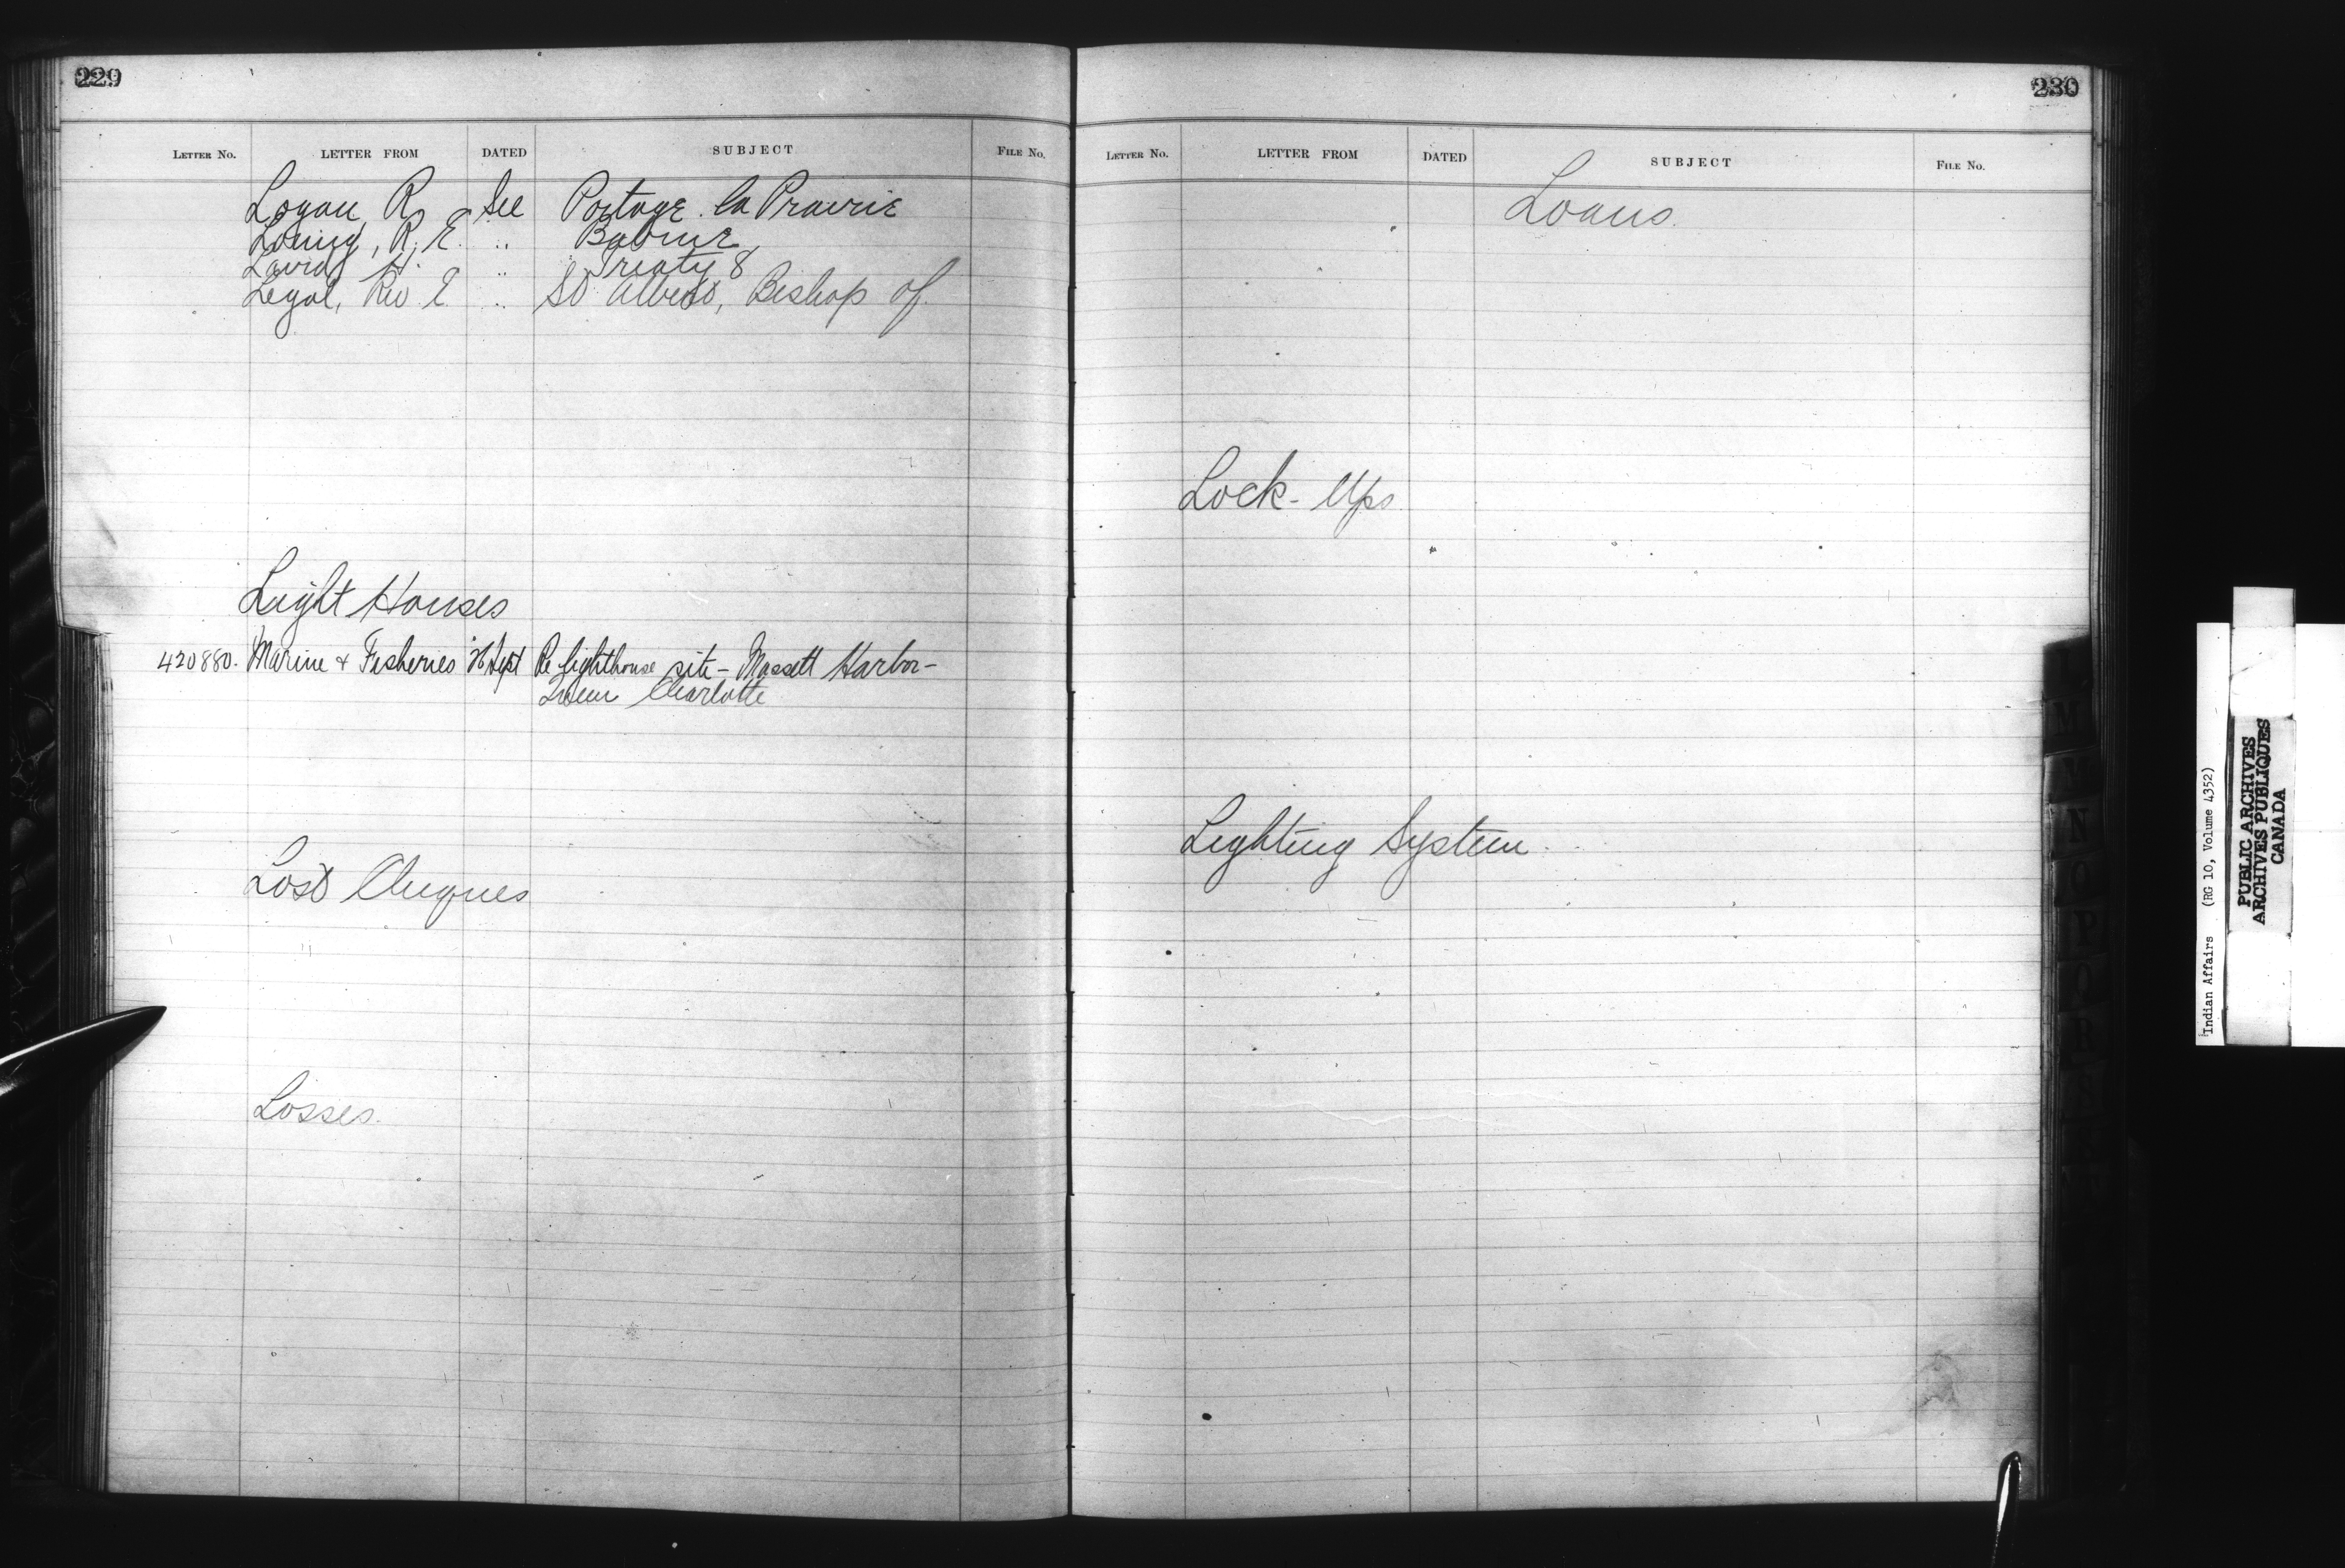 229
LETTER No. LETTER FROM DATED SUBJECT FILE No.
Logan, R. See Portage la Prairie
Loring, R. E. " Babine
Laird, H. " Treaty 8
Legal, Rev. E. " St Albert, Bishop of
Light Houses
420880. Marine & Fisheries 26 Sept Re lighthouse site - Massett Harbor -
Queen Charlotte
Lost Cheques
Losses.
230
LETTER No. LETTER FROM DATED SUBJECT FILE No.
Loans.
Lock-Ups
Lighting System
L
M
N
O
P
Q
R
S
Indian Affairs (RG 10, Volume 4352)
PUBLIC ARCHIVES
ARCHIVES PUBLIQUES
CANADA